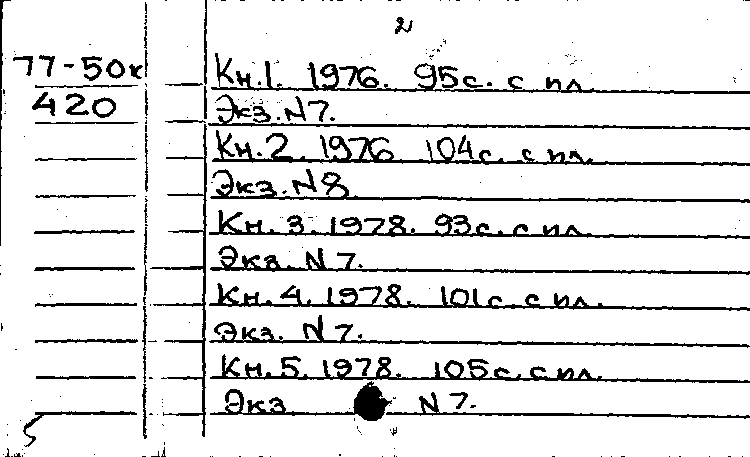 2
77-50к
420
Кн.1. 1976. 95с. с ил.
Экз. N7.
Кн.2. 1976 104с. с ил.
Экз. N8
Кн. 3. 1978. 93с. с ил.
Экз. N 7.
Кн. 4. 1978. 101с. с ил.
Экз. N 7.
Кн. 5. 1978. 105с. с ил.
Экз. N 7.